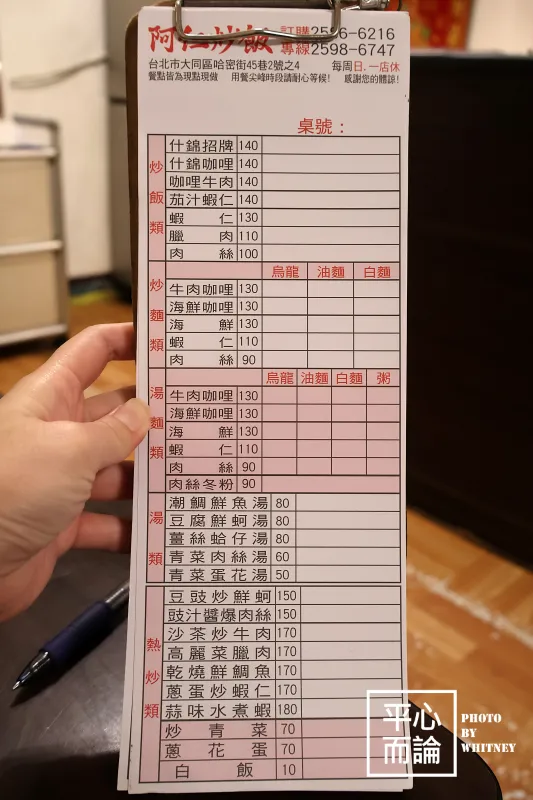 阿仁炒飯 訂購 2596-6216
專線 2598-6747
台北市大同區哈密街45巷2號之4 每周日.一店休
餐點皆為現點現做 用餐尖峰時段請耐心等候! 感謝您的體諒!
桌號：
炒飯類
什錦招牌 140
什錦咖哩 140
咖哩牛肉 140
茄汁蝦仁 140
蝦仁 130
臘肉 110
肉絲 100
炒麵類
烏龍 油麵 白麵
牛肉咖哩 130
海鮮咖哩 130
海鮮 130
蝦仁 110
肉絲 90
湯麵類
烏龍 油麵 白麵 粥
牛肉咖哩 130
海鮮咖哩 130
海鮮 130
蝦仁 110
肉絲 90
肉絲冬粉 90
湯類
潮鯛鮮魚湯 80
豆腐鮮蚵湯 80
薑絲蛤仔湯 80
青菜肉絲湯 60
青菜蛋花湯 50
熱炒類
豆豉炒鮮蚵 150
豉汁醬爆肉絲 150
沙茶炒牛肉 170
高麗菜臘肉 170
乾燒鮮鯛魚 170
蔥蛋炒蝦仁 170
蒜味水煮蝦 180
炒青菜 70
蔥花蛋 70
白飯 10
平心而論
PHOTO
BY
WHITNEY